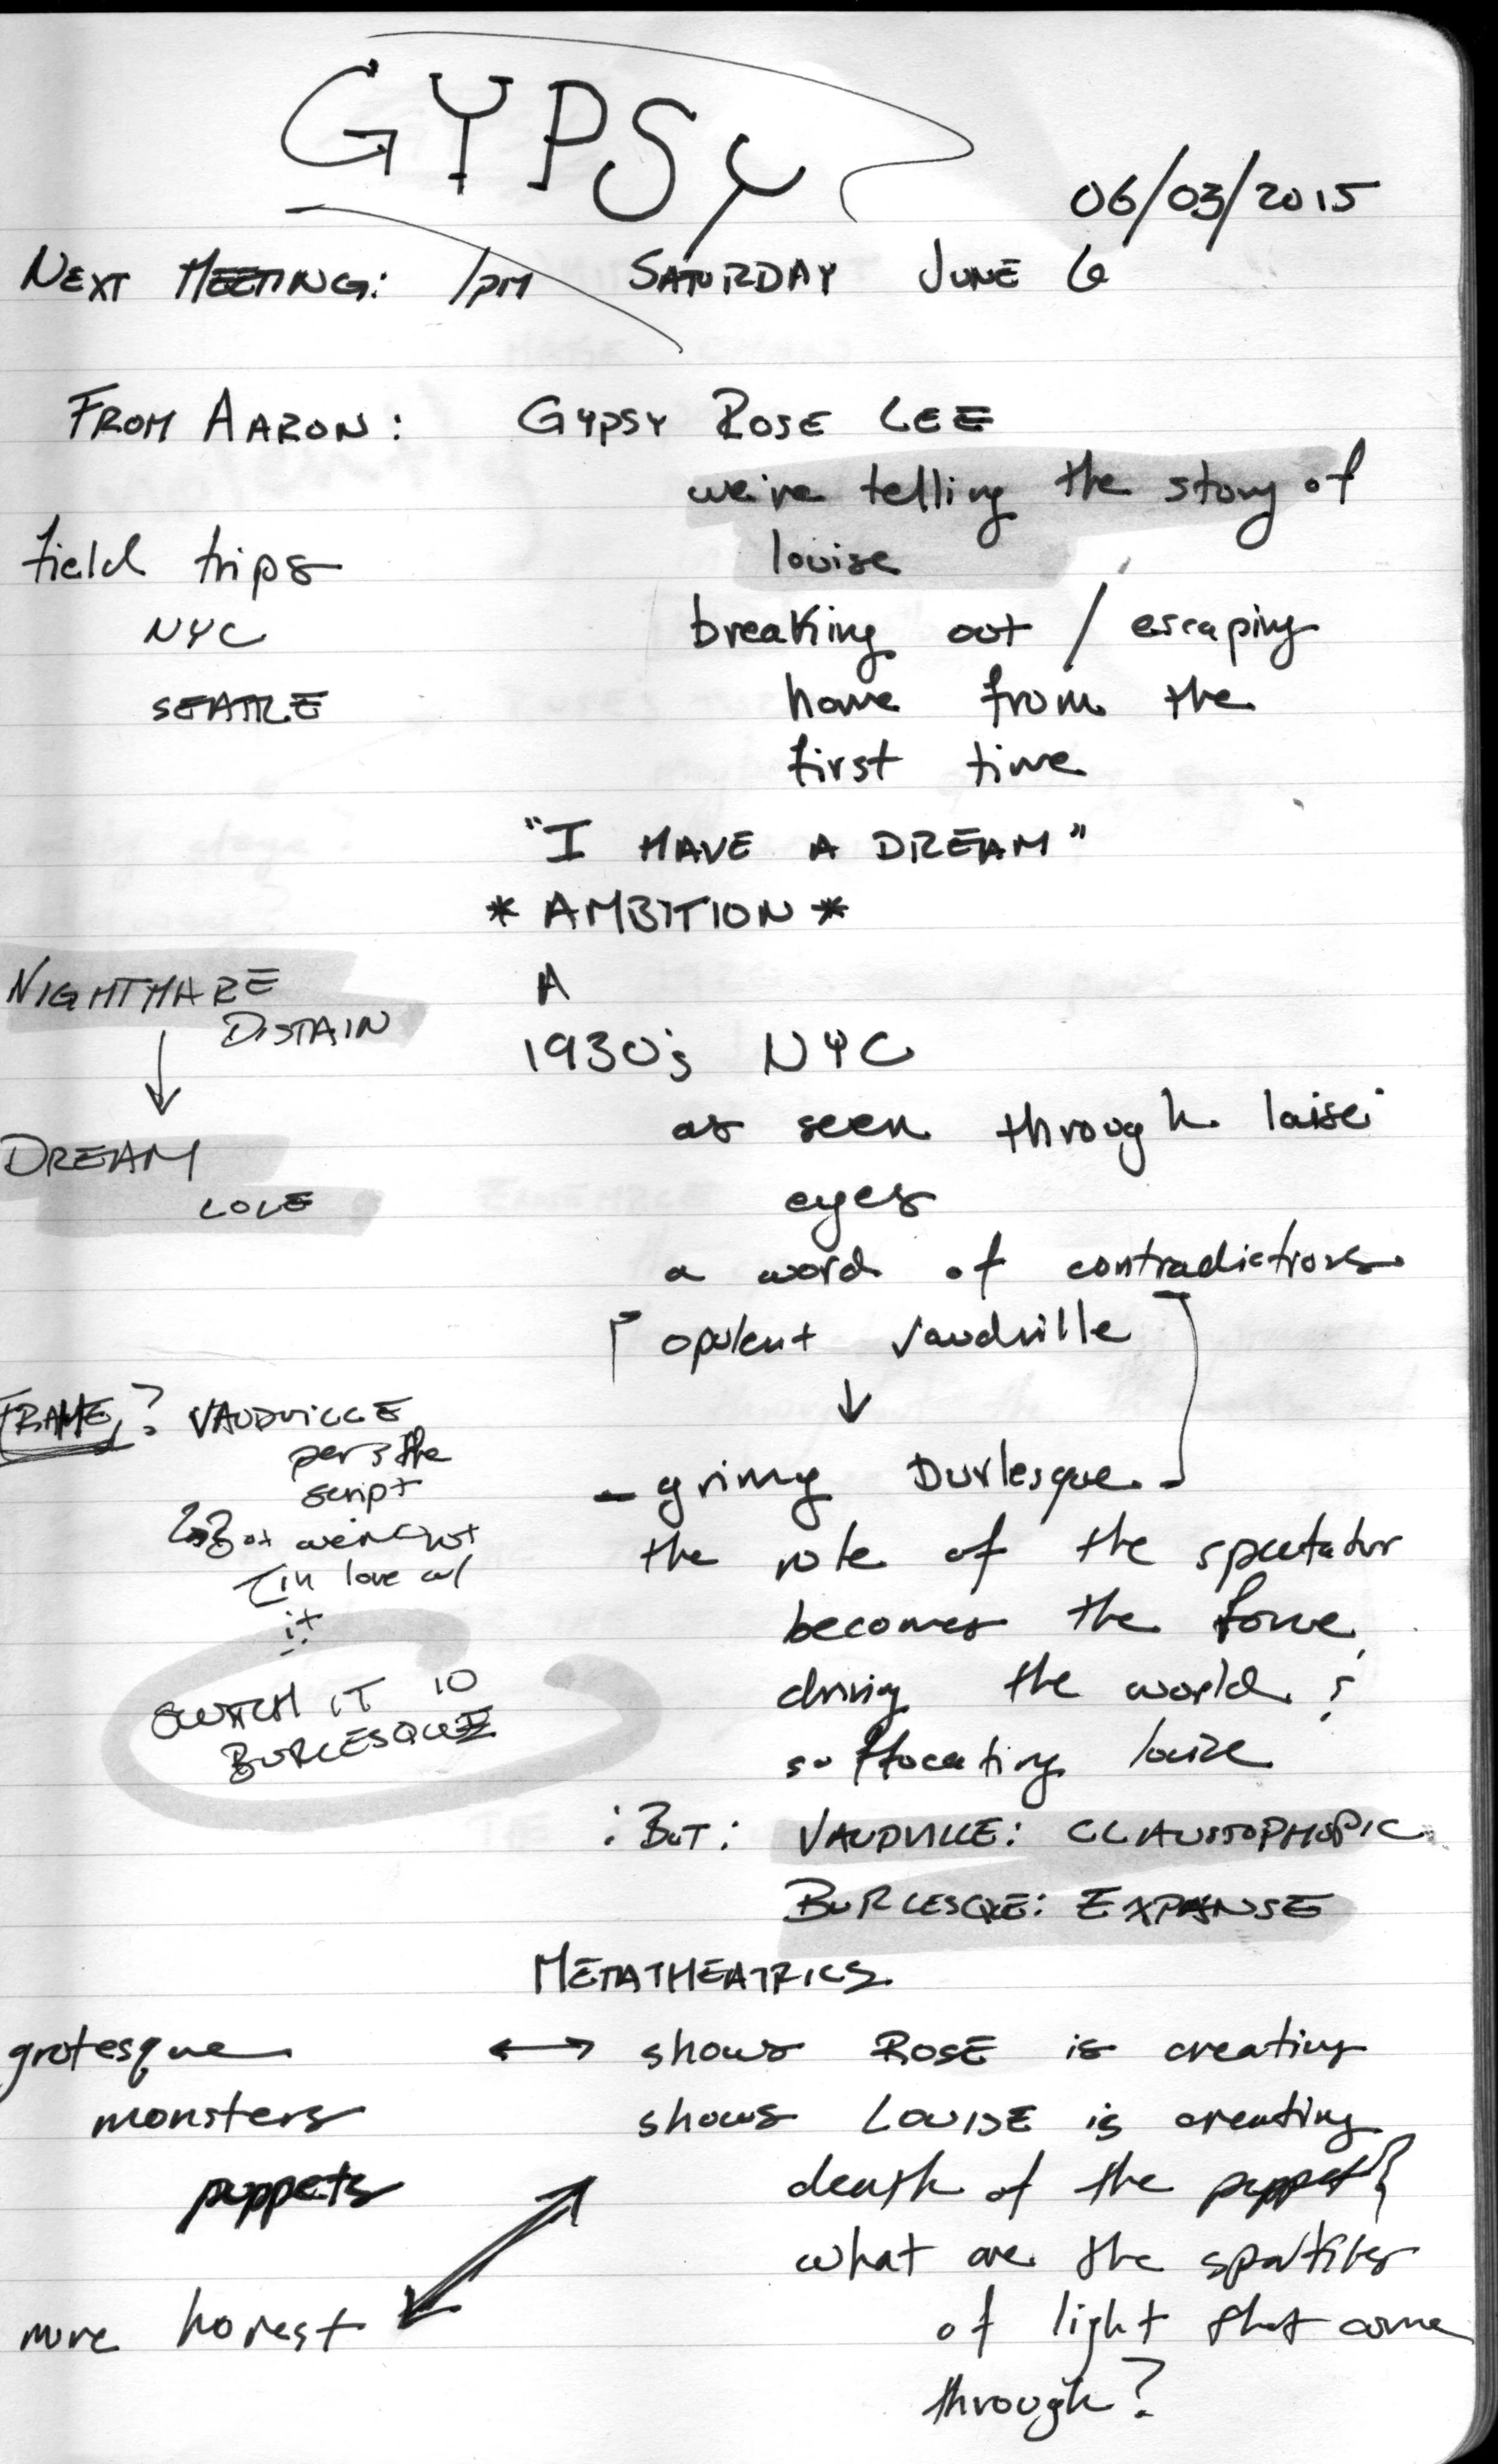 GYPSY
06/03/2015
NEXT MEETING: 1PM SATURDAY JUNE 6
FROM AARON: GYPSY ROSE LEE
we're telling the story of
louise
field trips
NYC
SEATTLE
breaking out / escaping
home from the
first time
"I HAVE A DREAM"
* AMBITION *
NIGHTMARE
DISTAIN
↓
DREAM
LOVE
A
1930's NYC
as seen through
eyes
a word of contradictions
opulent vaudville
↓
- grimy Burlesque -
FRAME? VAUDVILLE
per the
script
not
in love w/
it
SWITCH IT TO
BURLESQUE
the role of the spectator
becomes the force
driving the world
suffocating louise
: BUT: VAUDVILLE: CLAUSTOPHOPIC
BURLESQUE: EXPANSE
METATHEATRICS
grotesque ↔ shows ROSE is creating
monsters shows LOUISE is creating
puppets death of the puppet
what are the
of light that come
through?
more honest